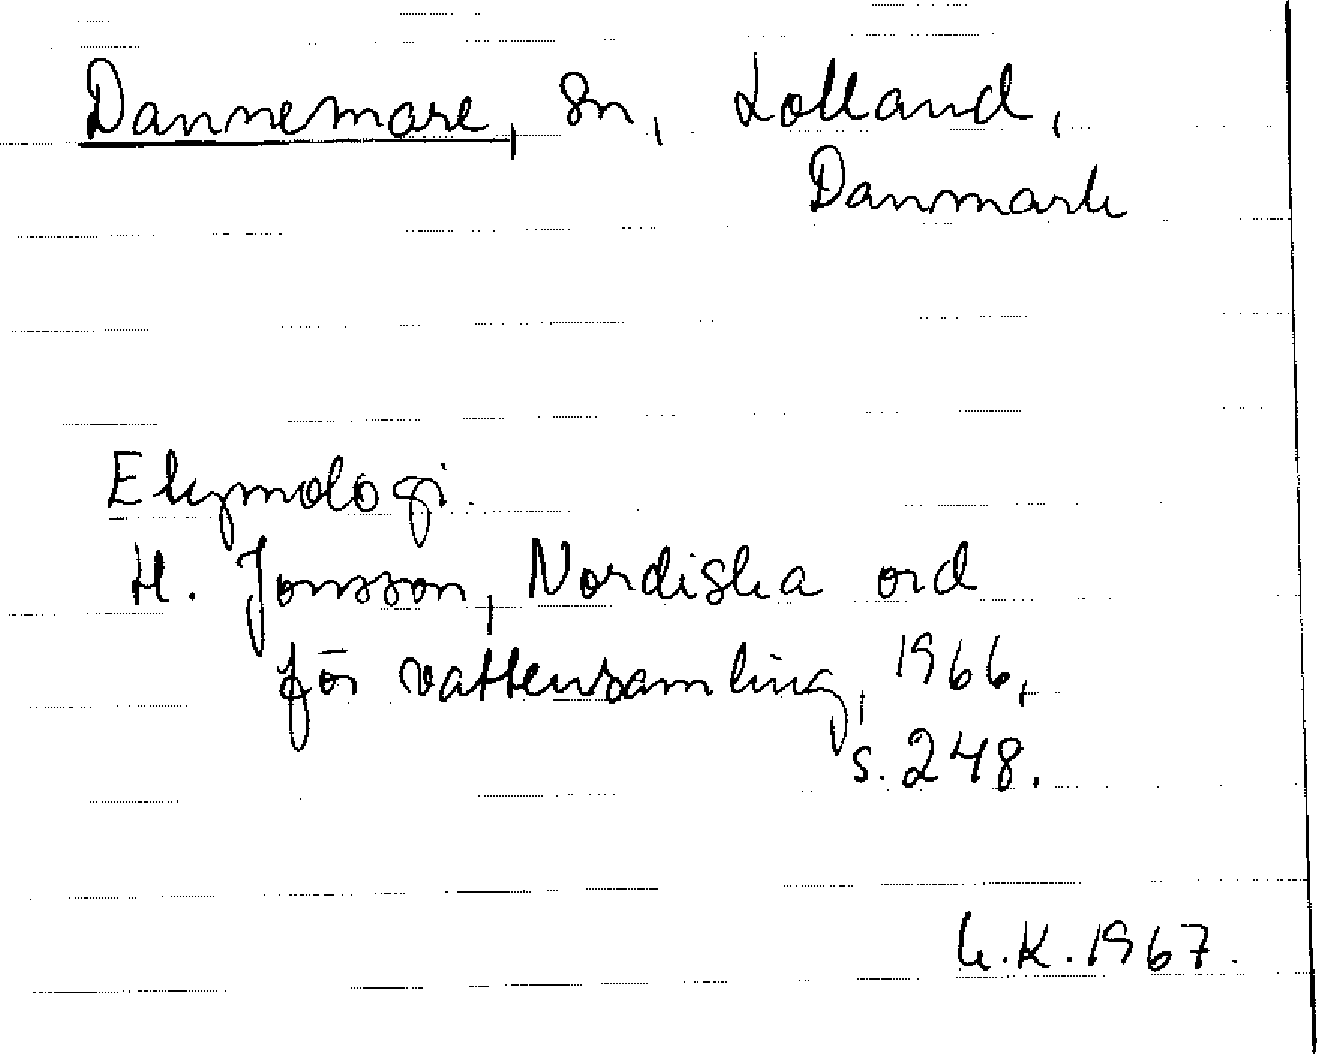 Dannemare, Sn, Lolland,
Danmark
Etymologi.
H. Jonsson, Nordiska ord
för vattensamling, 1966,
s. 248.
K. 1967.